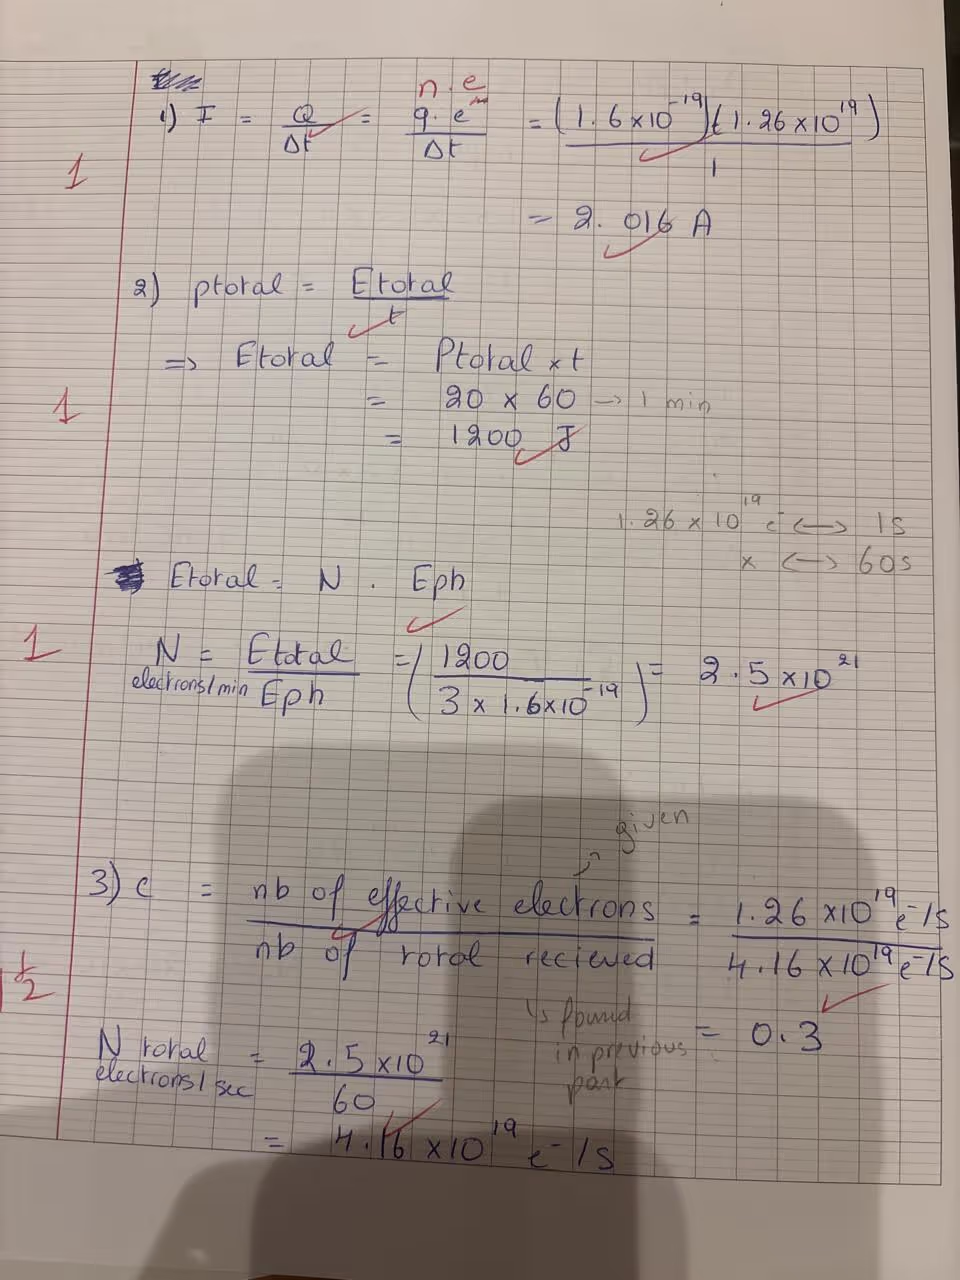 n.e
1) I = Q/Δt = q.e/Δt = (1.6×10^-19)(1.26×10^19)/1
1
= 2.016 A
2) ptotal = Etotal/t
=> Etotal = Ptotal × t
1
= 20 × 60 → 1 min
= 1200 J
1.26 × 10^19 e^- <-> 1s
x <-> 60s
Etotal = N . Eph
1
N electrons/min = Etotal/Eph = (1200/(3 × 1.6×10^-19)) = 2.5×10^21
given
3) c = nb of effective electrons/nb of total recieved = 1.26×10^19 e^-/s / 4.16×10^19 e^-/s
1 1/2
↳ found in previous part
= 0.3
N total electrons/sec = 2.5×10^21/60
= 4.16 ×10^19 e^-/s